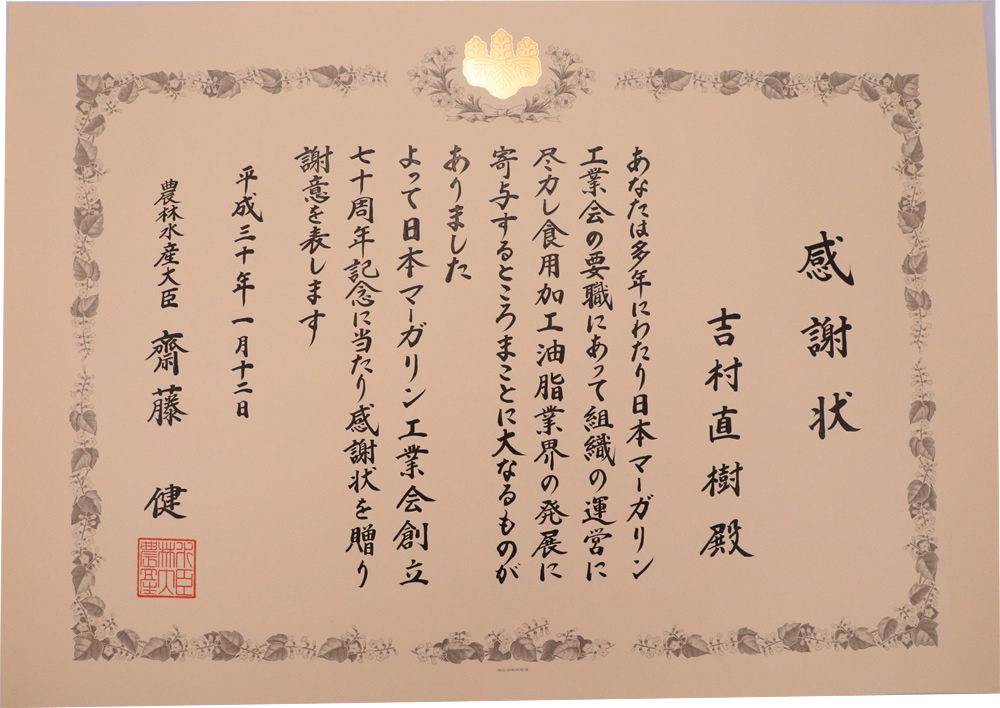 感謝状
吉村直樹殿
あなたは多年にわたり日本マーガリン
工業会の要職にあって組織の運営に
尽力し食用加工油脂業界の発展に
寄与するところまことに大なるものが
ありました
よって日本マーガリン工業会創立
七十周年記念に当たり感謝状を贈り
謝意を表します
平成三十年一月十二日
農林水産大臣 齋藤 健